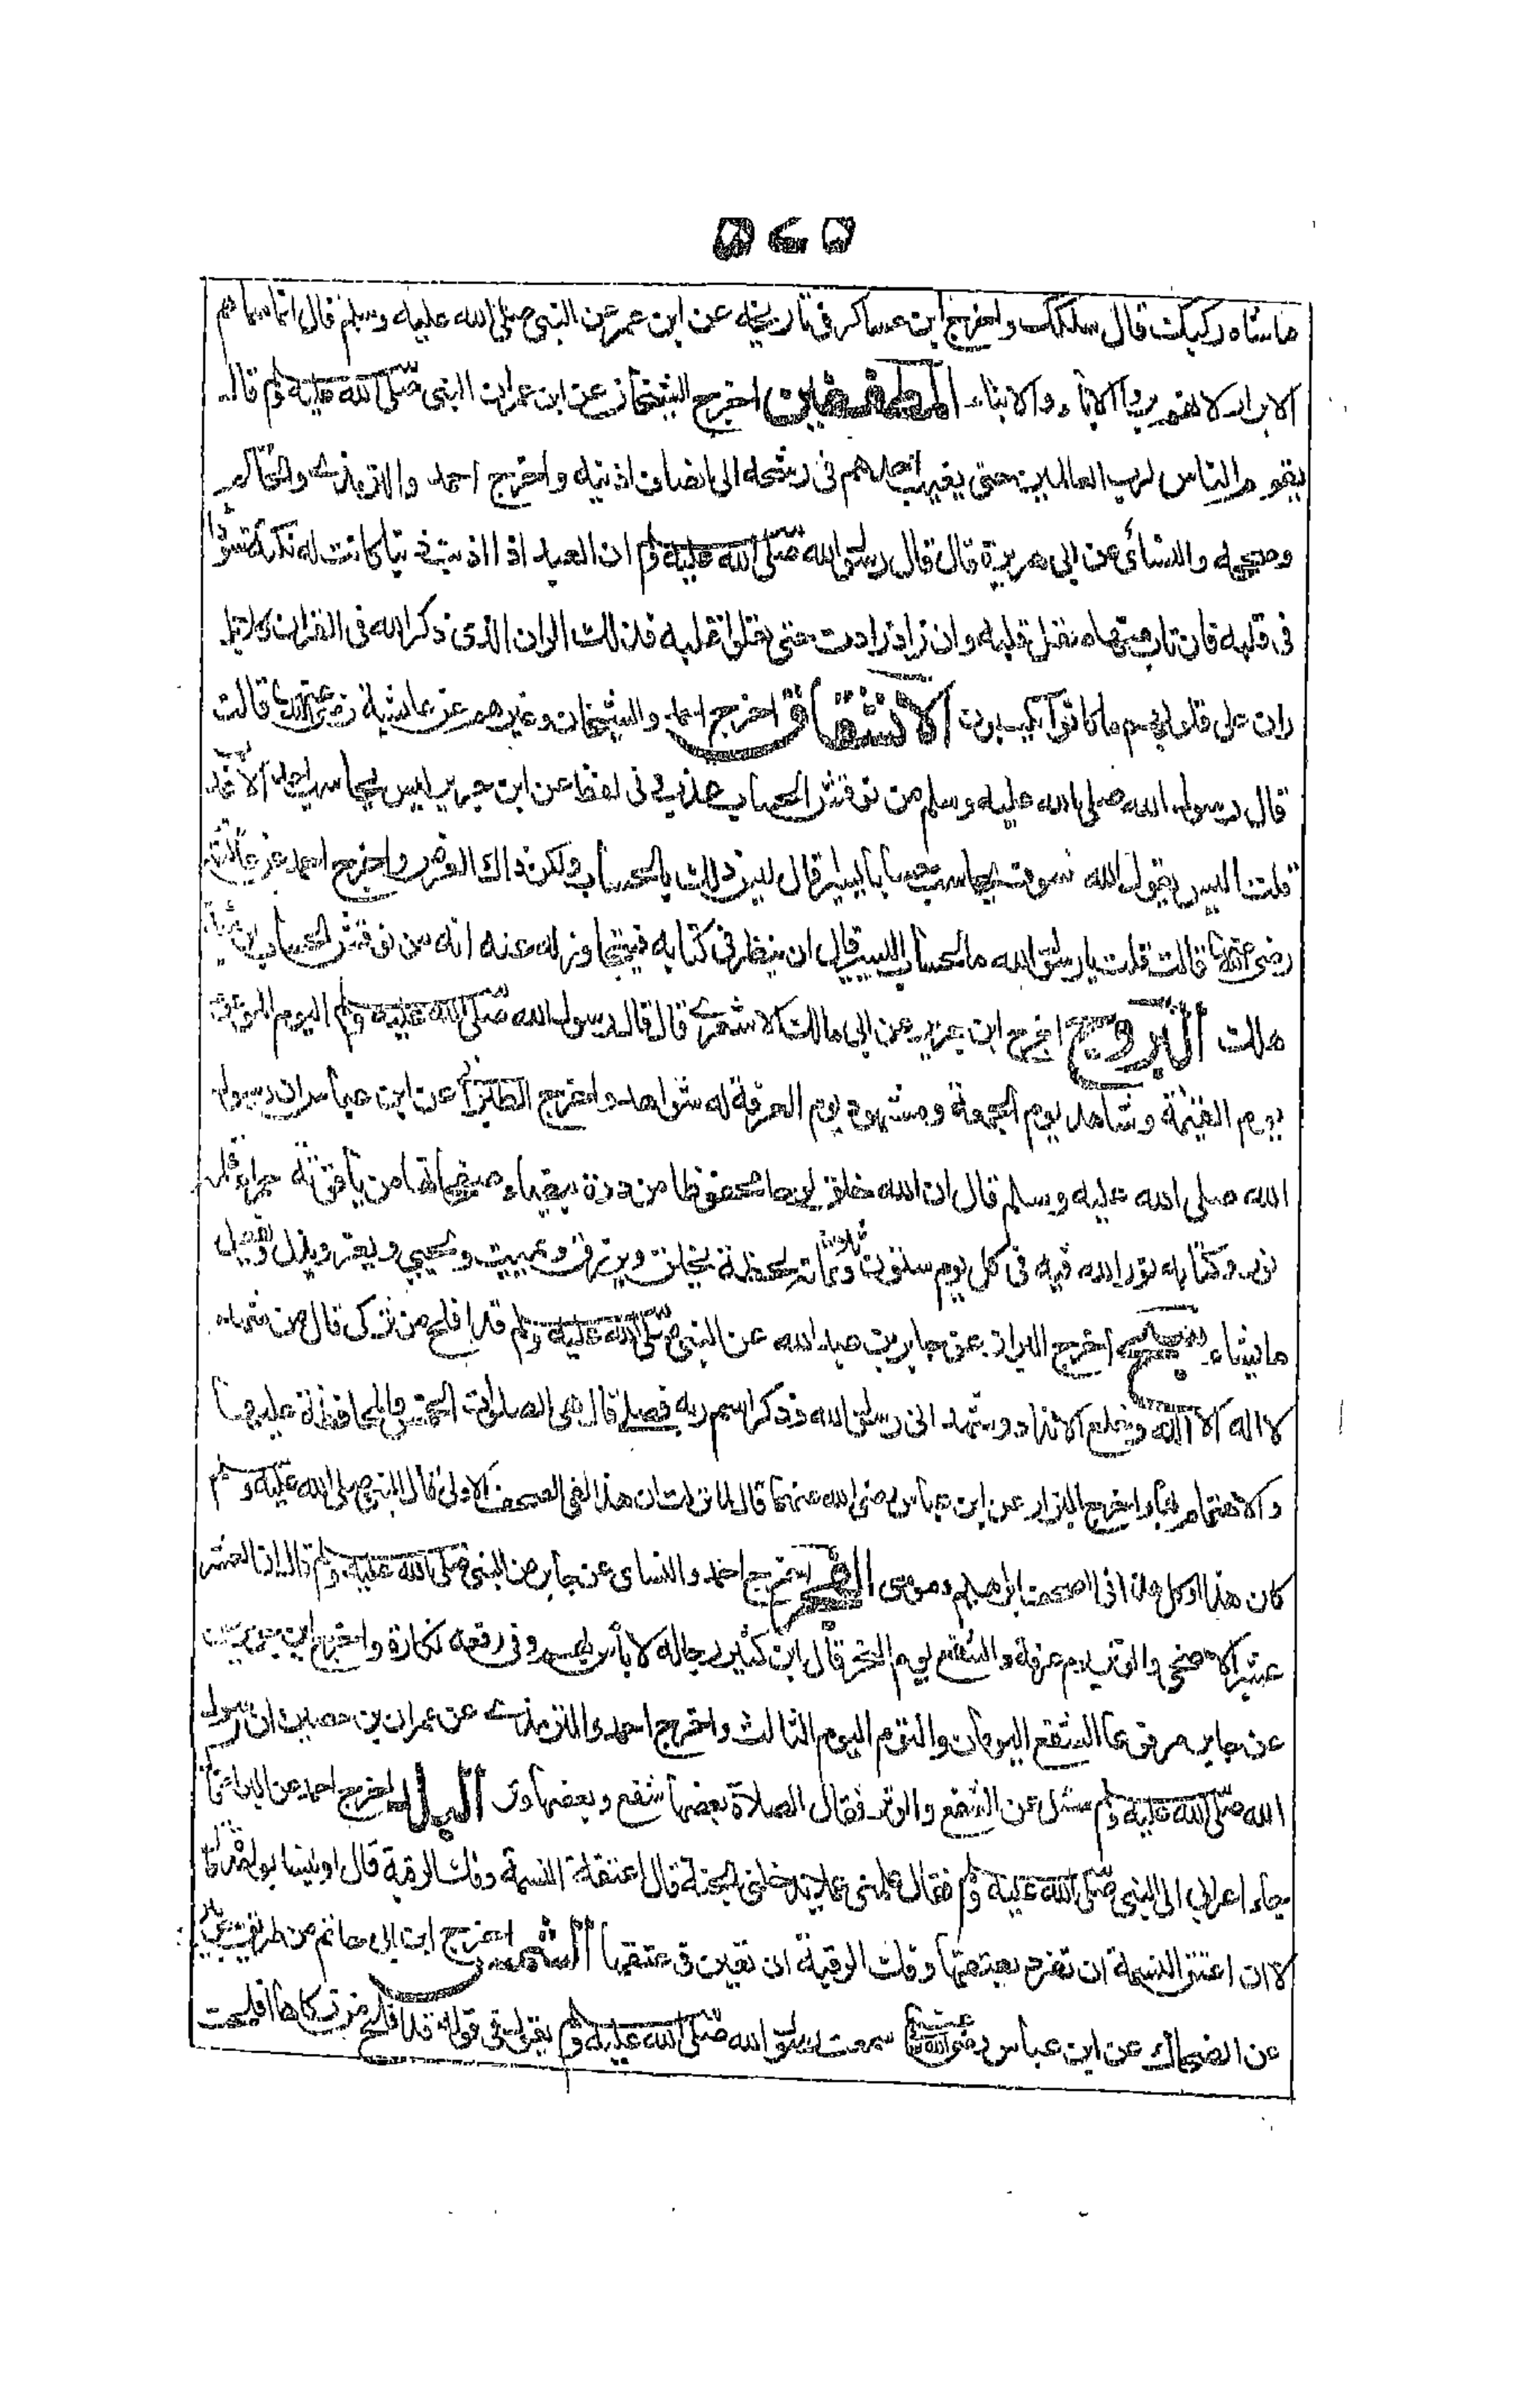 ما شاء ركبك قال سلكك واخرج ابن عساكر فى تاريخه عن ابن عمر عن النبى صلى الله عليه وسلم قال انما سماهم
الابرار لانهم بروا الاباء والابناء المطففين اخرج الشيخان عن ابن عمر ان النبى صلى الله عليه وسلم قال
يقوم الناس لرب العالمين حتى يغيب احدهم فى رشحه الى انصاف اذنيه واخرج احمد والترمذى والحاكم
وصححه والنسائى عن ابى هريرة قال قال رسول الله صلى الله عليه وسلم ان العبد اذا اذنب ذنبا كانت له نكتة سودا
فى قلبه فان تاب منها صقل قلبه وان زاد زادت حتى يعلو قلبه فذلك الران الذى ذكر الله فى القران كلا بل
ران على قلوبهم ما كانوا يكسبون الانشقاق اخرج احمد والشيخان وغيرهم عن عائشة رضى الله عنها قالت
قال رسول الله صلى الله عليه وسلم من نوقش الحساب عذب وفى لفظ عن ابن جرير ليس يحاسب احد الا عذب
قلت اليس يقول الله فسوف يحاسب حسابا يسيرا قال ليس ذلك بالحساب ولكن ذاك العرض واخرج احمد عن عائشة
رضى الله عنها قالت قلت يا رسول الله ما الحساب اليسير قال ان ينظر فى كتابه فيتجاوز له عنه انه من نوقش الحساب يومئذ
هلك البروج اخرج ابن جرير عن ابى مالك الاشعرى قال قال رسول الله صلى الله عليه وسلم اليوم الموعود
يوم القيمة وشاهد يوم الجمعة ومشهود يوم العرفة له شواهد واخرج الطبرانى عن ابن عباس ان رسول
الله صلى الله عليه وسلم قال ان الله خلق لوحا محفوظا من درة بيضاء صفحاتها من ياقوتة حمراء قلمه
نور وكتابه نور لله فيه فى كل يوم ستون وثلاث مائة لحظة يخلق ويرزق ويميت ويحيي ويعز ويذل ويفعل
ما يشاء سبح اخرج البزار عن جابر بن عبد الله عن النبى صلى الله عليه وسلم قد افلح من تزكى قال من شهد
لا اله الا الله وخلع الانداد وشهد انى رسول الله وذكر اسم ربه فصلى قال هى الصلوات الخمس والمحافظة عليها
والاهتمام بها واخرج البزار عن ابن عباس رضى الله عنهما قال لما نزلت ان هذا لفى الصحف الاولى قال النبى صلى الله عليه وسلم
كان هذا او كل هذا فى صحف ابراهيم وموسى الفجر اخرج احمد والنساى عن جابر عن النبى صلى الله عليه وسلم قال ان العشر
عشر الاضحى والوتر يوم عرفة والشفع يوم النحر قال ابن كثير رجاله لا باس بهم وفى رفعه نكارة واخرج ابن جرير
عن جابر مرفوعا الشفع اليومان والوتر اليوم الثالث واخرج احمد والترمذى عن عمران بن حصين ان رسول
الله صلى الله عليه وسلم سئل عن الشفع والوتر فقال الصلاة بعضها شفع وبعضها وتر البلد اخرج احمد عن البراء
جاء اعرابى الى النبى صلى الله عليه وسلم فقال علمنى عملا يدخلنى الجنة قال اعتق النسمة وفك الرقبة قال اوليستا بواحدة
لا ان اعتق النسمة ان تفرد بعتقها وفك الرقبة ان تعين فى عتقها الشمس اخرج ابن ابى حاتم من طريق
عن الضحاك عن ابن عباس رضى الله عنهما سمعت رسول الله صلى الله عليه وسلم يقول فى قوله قد افلح من زكاها افلحت